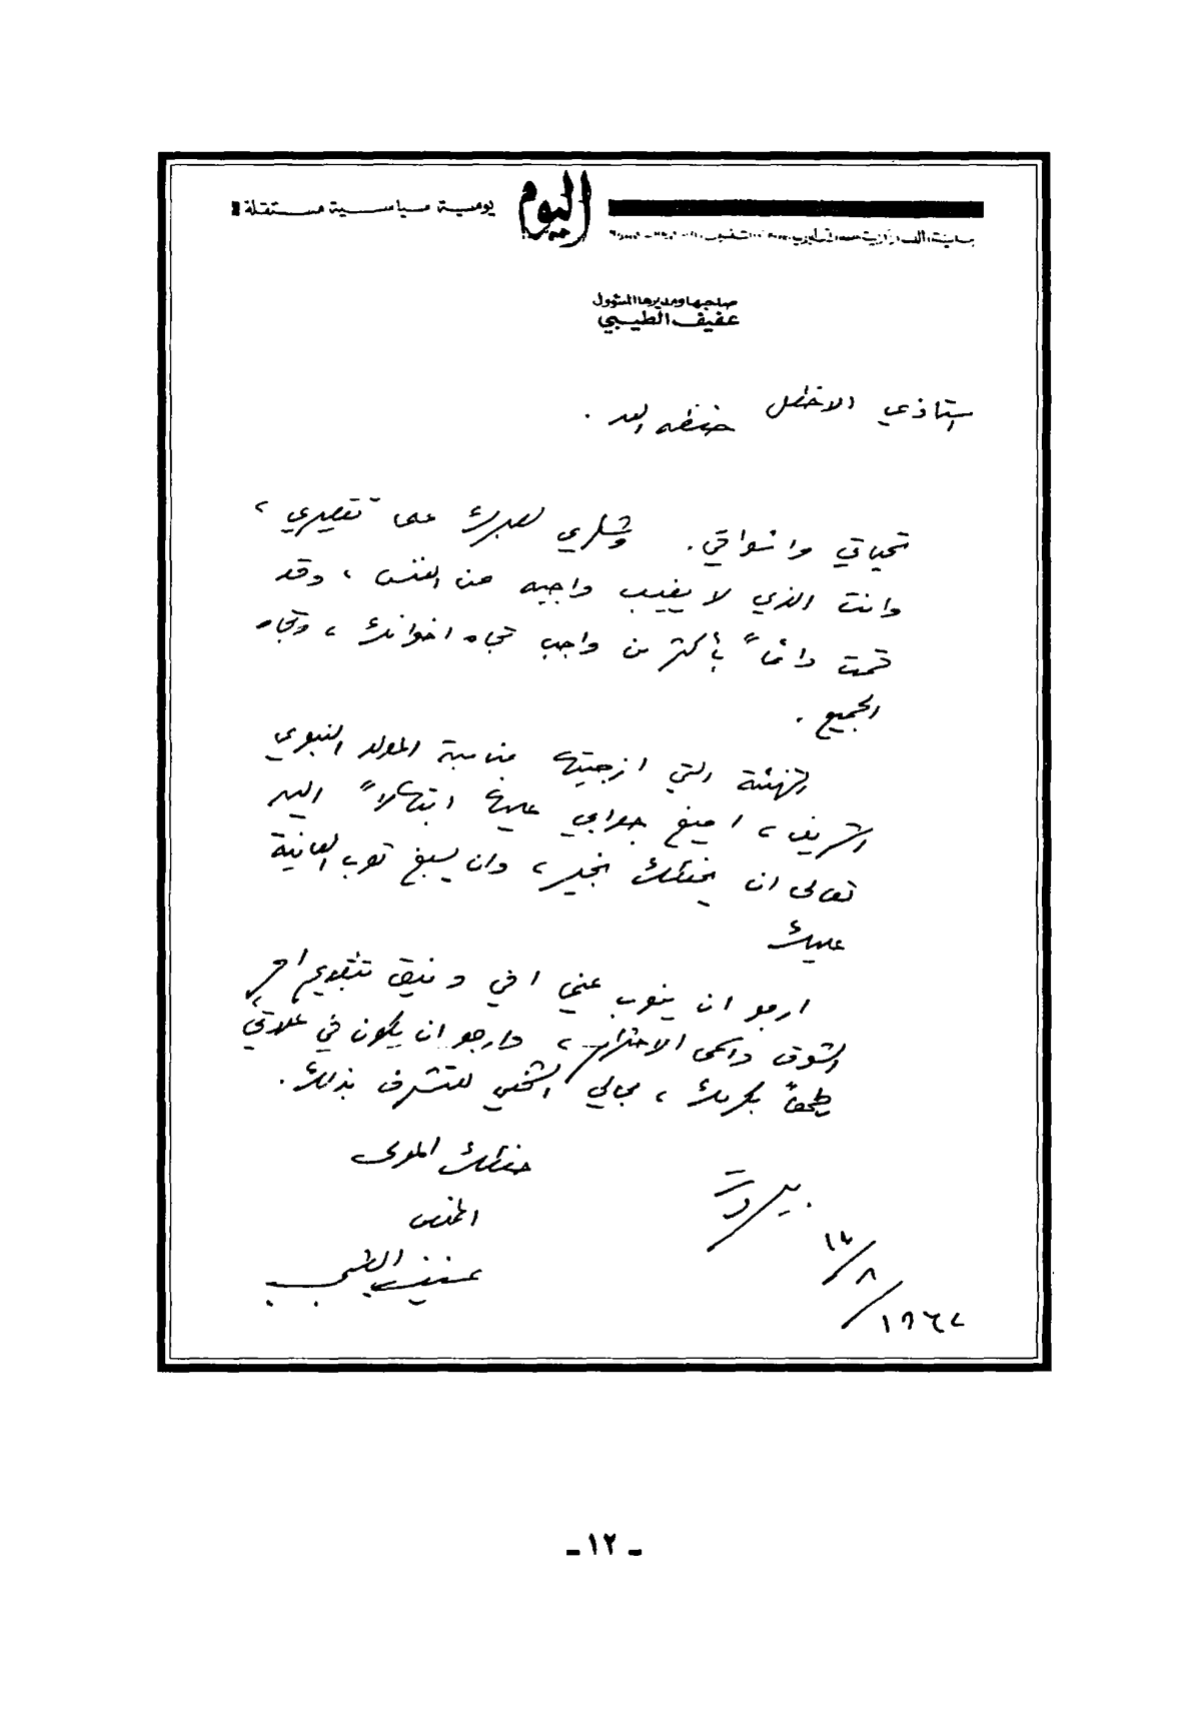 اليوم
يومية سياسية مستقلة
صاحبها ومديرها المسؤول
عفيف الطيبي
استاذي الاخطل حفظه الله .
تحياتي واشواقي . وشكري لصبرك على تقصيري ،
وانت الذي لا يغيب واجبه عن النفس ، وقد
قمت دائماً بأكثر من واجب تجاه اخوانك ، وتجاه
الجميع .
التهنئة التي ازجيتها بمناسبة المولد النبوي
الشريف ، اصيغ جوابي عليها ابتهالاً اليه
تعالى ان يحفظك بخير ، وان يسبغ ثوب العافية
عليك
ارجو ان ينوب عني اخي وفيق بتقديم احر
الشوق واسمى الاحترام ، وارجو ان يكون في علاقتي
بكرمك ، مجالي الشخصي للتشرف بذلك .
حفظك المولى
المخلص
عفيف الطيبي
بيروت
١٩٦٢/٨/١٧
- ١٢ -